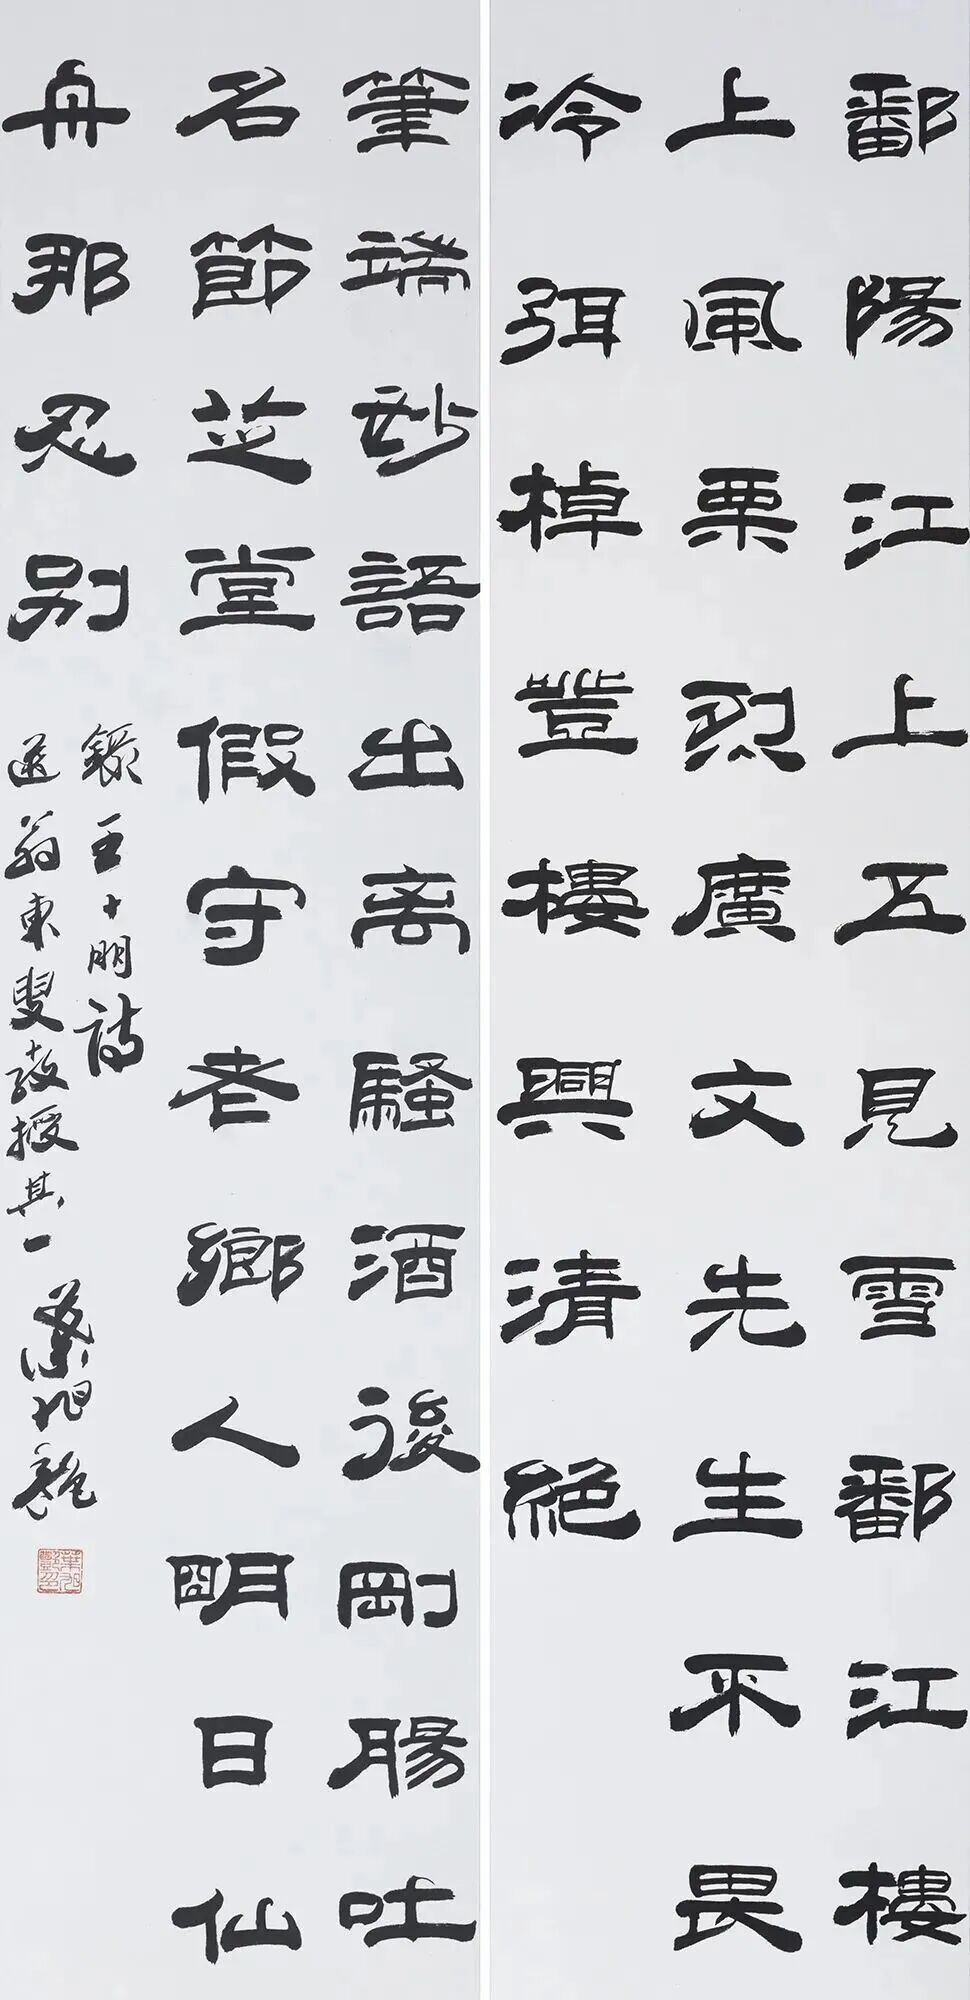 鄱陽江上五見雪鄱江樓
上風栗烈廣文先生不畏
冷弭棹登樓興清絕
筆端妙語出离騷酒後剛腸吐
名節芝堂假守老鄉人明日仙
舟那忍別
錄王十朋詩
送翁東叟教授其一 葉旭艷
葉旭艷印